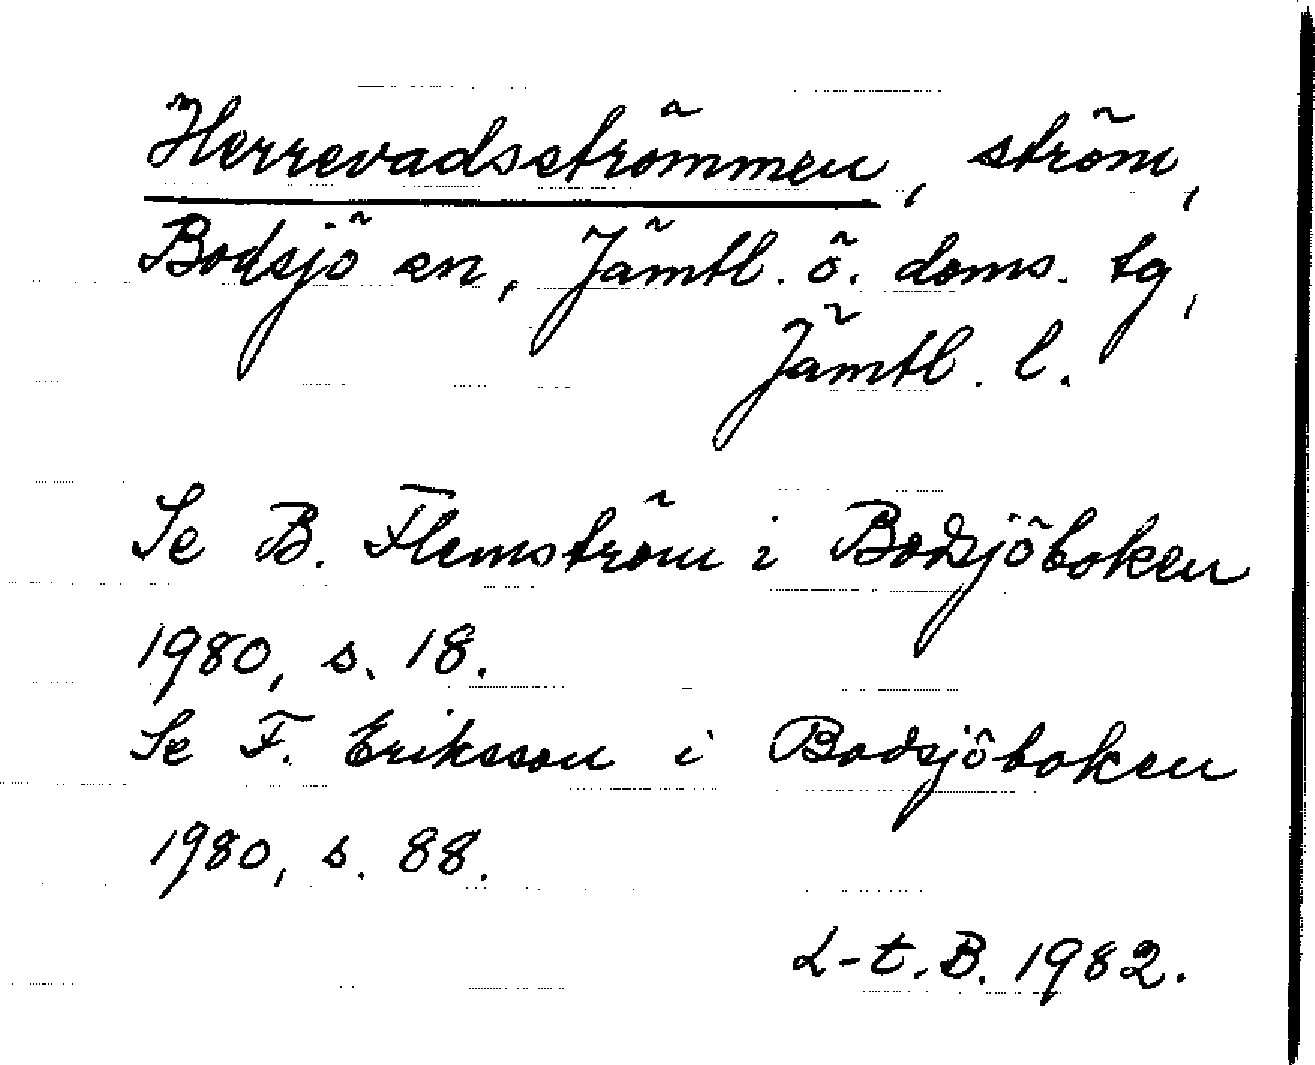 Herrevadsströmmen, ström,
Bodsjö sn, Jämtl. ö. doms. tg,
Jämtl. l.
Se B. Flemström i Bodsjöboken
1980, s. 18.
Se F. Eriksson i Bodsjöboken
1980, s. 88.
L-t. B. 1982.